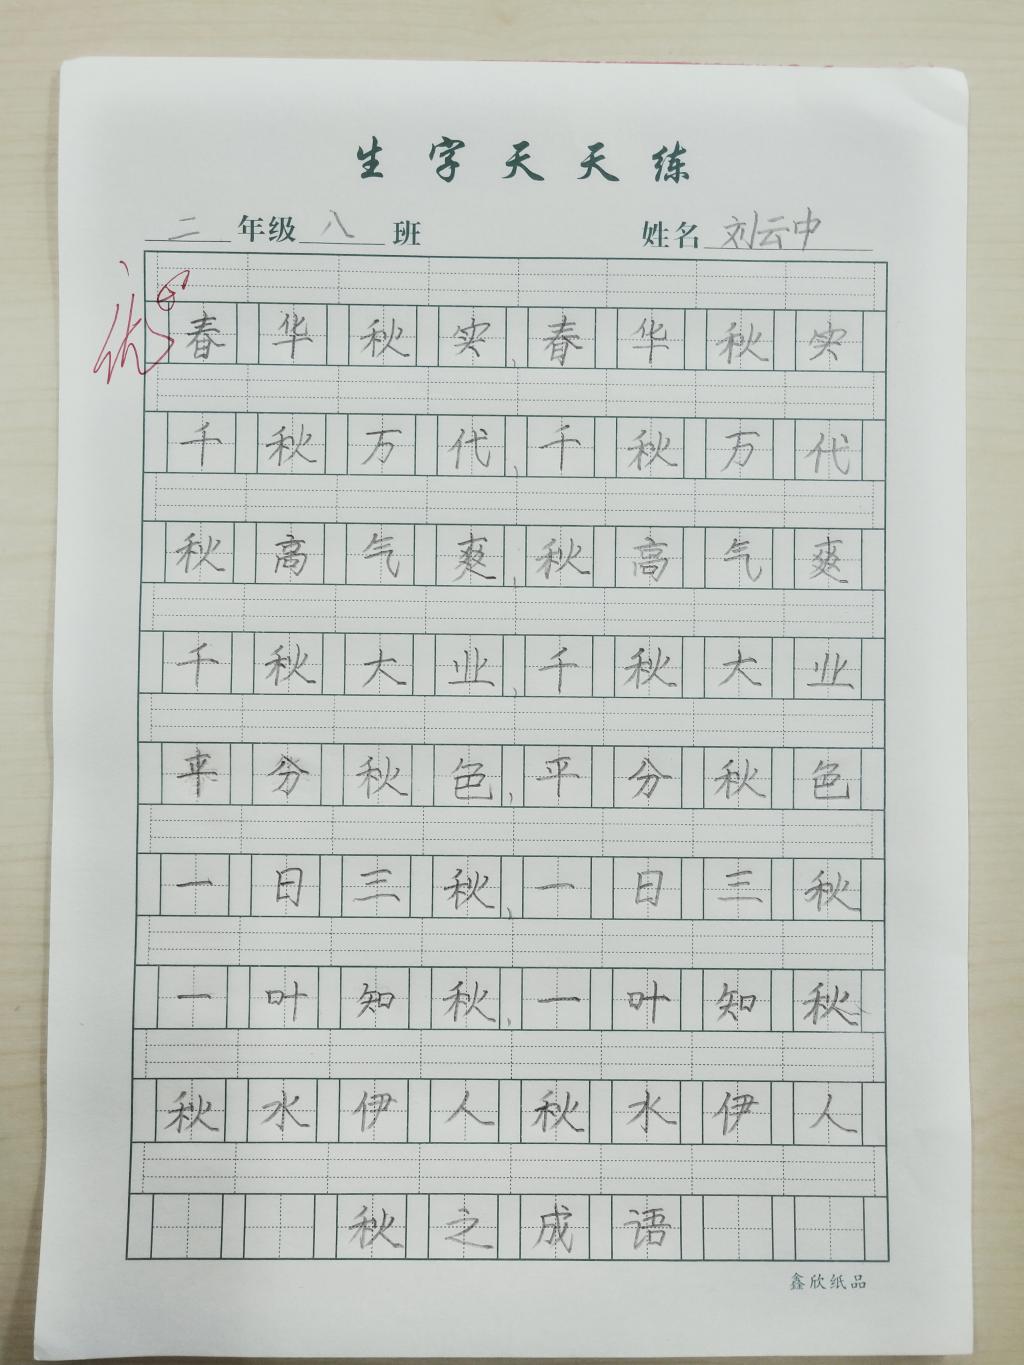 生字天天练
二年级八班 姓名刘云中
优
春华秋实,春华秋实
千秋万代,千秋万代
秋高气爽,秋高气爽
千秋大业,千秋大业
平分秋色,平分秋色
一日三秋,一日三秋
一叶知秋,一叶知秋
秋水伊人 秋水伊人
秋之成语
鑫欣纸品